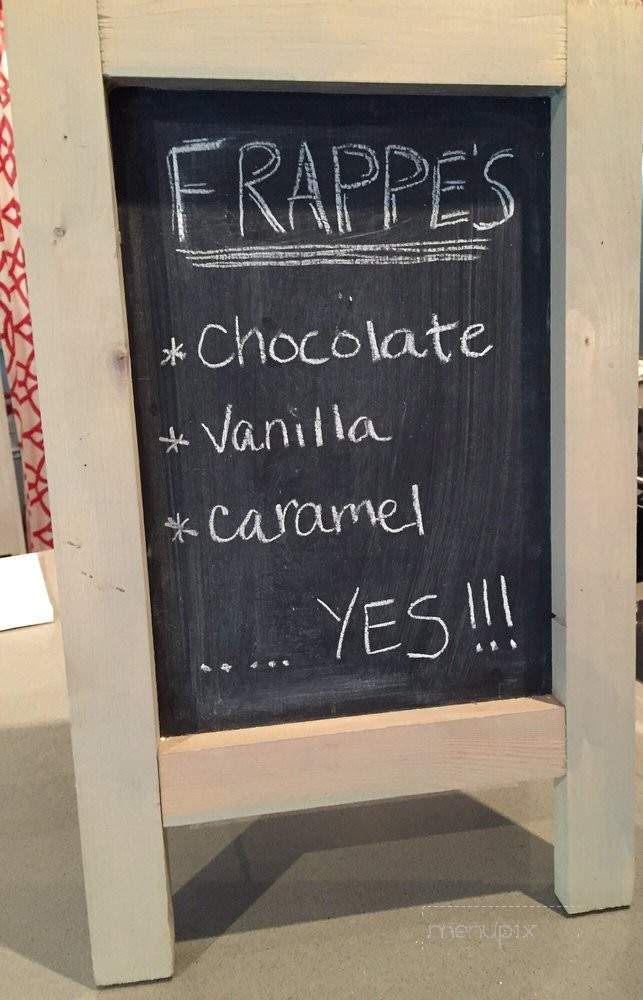 FRAPPE'S
* Chocolate
* Vanilla
* caramel
..... YES!!!
menupix